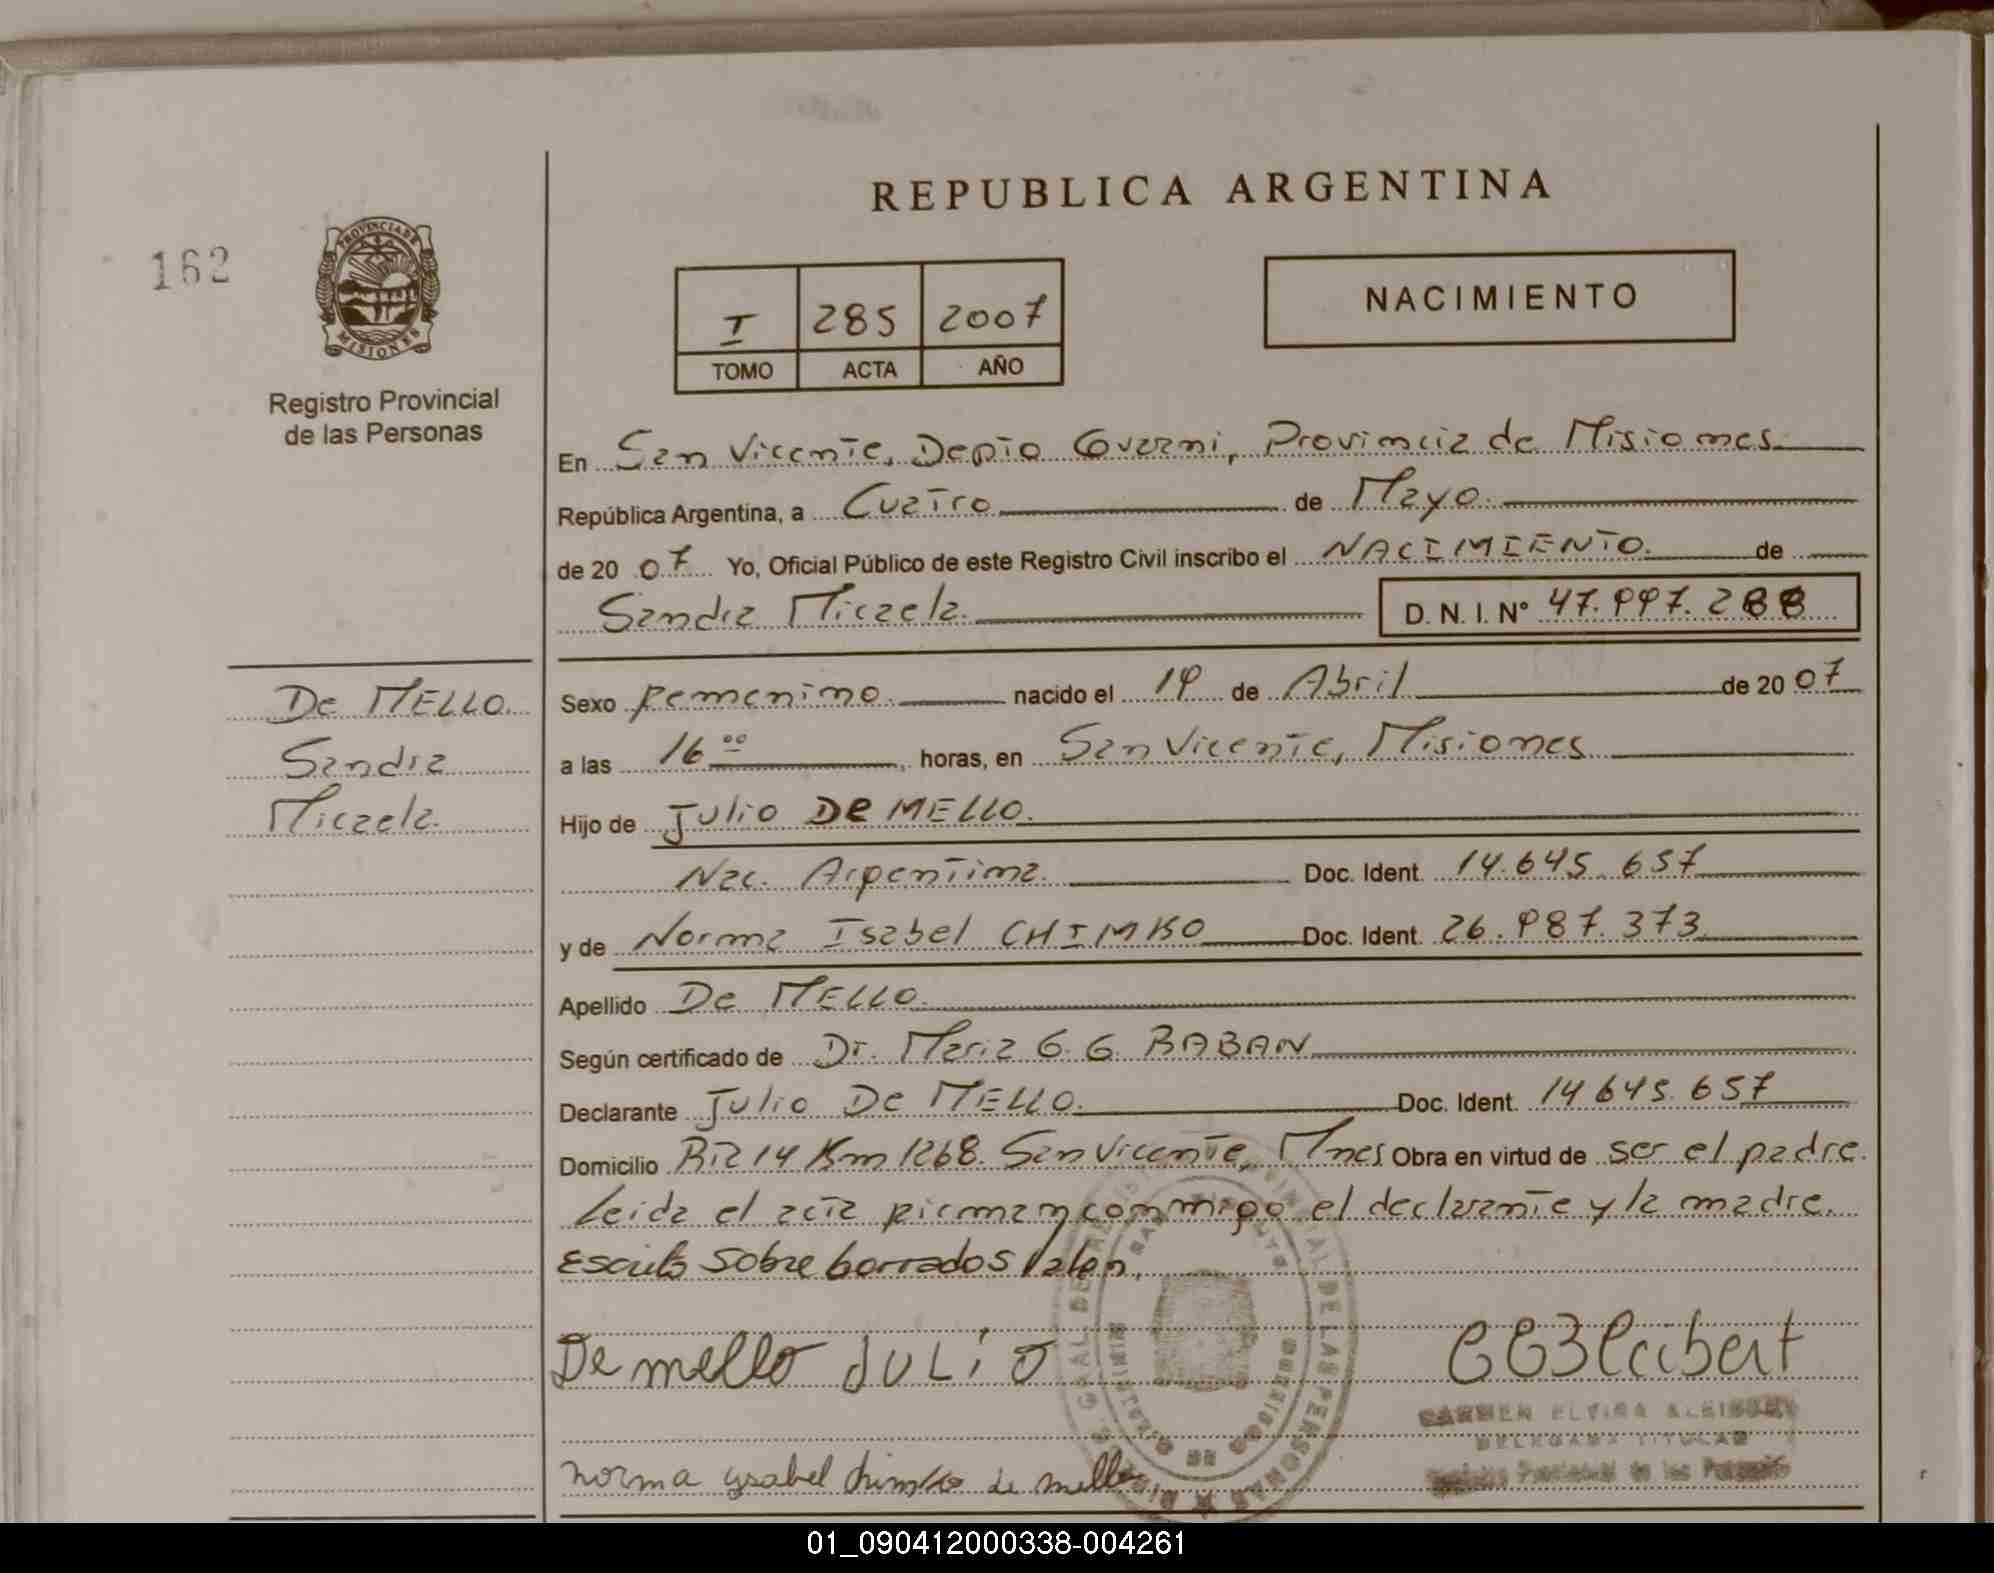 REPUBLICA ARGENTINA
162
PROVINCIA DE
MISIONES
Registro Provincial
de las Personas
I 285 2007
TOMO ACTA AÑO
NACIMIENTO
En San Vicente, Depto Guarani, Provincia de Misiones
República Argentina, a Cuatro de Mayo
de 2007 Yo, Oficial Público de este Registro Civil inscribo el NACIMIENTO de
Sandra Micaela D. N. I. N° 47.997.288
De MELLO
Sandra
Micaela
Sexo femenino nacido el 19 de Abril de 2007
a las 16 00 horas, en San Vicente, Misiones
Hijo de Julio De MELLO
Nac. Argentina Doc. Ident. 14.645.657
y de Norma Isabel CHIMKO Doc. Ident. 26.987.373
Apellido De MELLO
Según certificado de Dr. Maria G. G. BABAN
Declarante Julio De MELLO Doc. Ident. 14645.657
Domicilio Km 1268. San Vicente, Mnes Obra en virtud de ser el padre.
Leida el acta firman conmigo el declarante y la madre.
Escrito sobre borrados Valen.
De mello JULIO
norma ysabel chimko de mello
CARMEN ELVIRA
DELEGADA TITULAR
Registro Provincial de las Personas
01_090412000338-004261